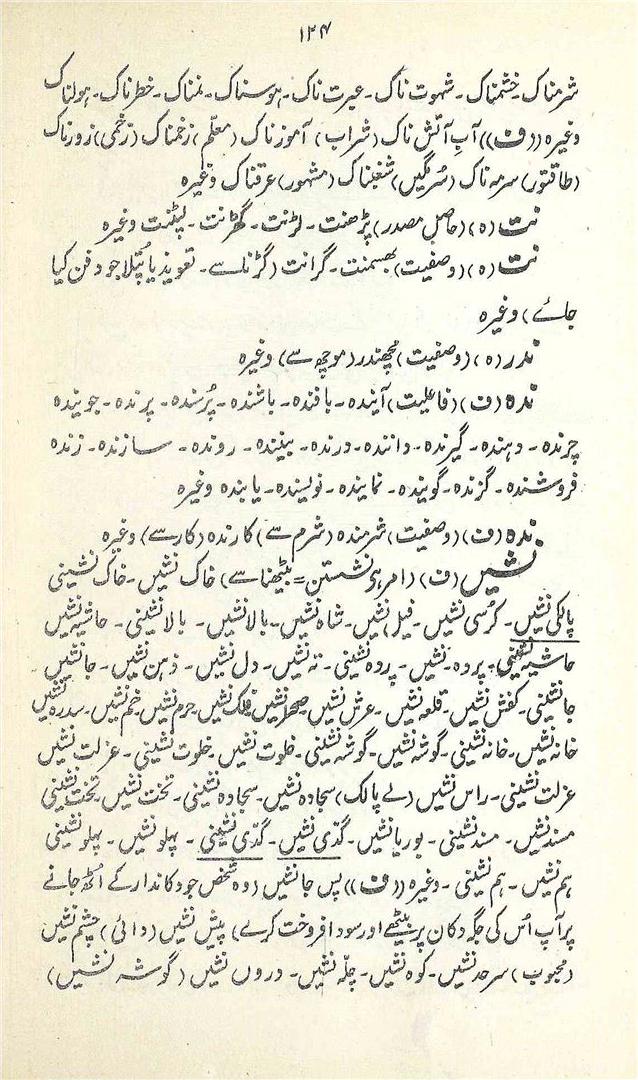 ۱۲۴
شرمناک۔ خشمناک۔ شہوت ناک۔ عبرت ناک۔ ہوسناک۔ نمناک۔ خطرناک۔ ہولناک
وغیرہ ((ف)) آبِ آتش ناک (شراب) آموزناک (معلّم) زخمناک (زخمی) زورناک
(طاقتور) سرمہ ناک (سُرمگیں) شغبناک (مشہور) عرقناک وغیرہ
نت (ہ) (حاصل مصدر) پڑھنت۔ لڑنت۔ گھڑنت۔ لپٹنت وغیرہ
نت (ہ) (وصفیت) بھسمنت۔ گرانت (گڑنا سے۔ تعویذ یا پُتلا جو دفن کیا
جائے) وغیرہ
ندر (ہ) (وصفیت) مُچھندر (موچھ سے) وغیرہ
ندہ (ف) (فاعلیت) آیندہ۔ بافندہ۔ باشندہ۔ پُرسندہ۔ پرندہ۔ جویندہ
چرندہ۔ دہندہ۔ گیرندہ۔ دانندہ۔ درندہ۔ بینندہ۔ روندہ۔ سازندہ۔ زندہ
فروشندہ۔ گزندہ۔ گویندہ۔ نمایندہ۔ نویسندہ۔ یابندہ وغیرہ
ندہ (ف) (وصفیت) شرمندہ (شرم سے) کارندہ (کار سے) وغیرہ
نشیں (ف) (امر ہی نشستن = بیٹھنا سے) خاک نشیں۔ خاک نشینی
پالکی نشیں۔ کُرسی نشیں۔ فیل نشیں۔ شاہ نشیں۔ بالا نشیں۔ بالا نشینی۔ حاشیہ نشیں
حاشیہ نشینی۔ پردہ نشیں۔ پردہ نشینی۔ تہ نشیں۔ دل نشیں۔ ذہن نشیں۔ جانشیں
جانشینی۔ کفش نشیں۔ قلعہ نشیں۔ عرش نشیں۔ صحرا نشیں۔ فلک نشیں۔ حرم نشیں۔ خم نشیں۔ سدرہ نشیں
خانہ نشیں۔ خانہ نشینی۔ گوشہ نشیں۔ گوشہ نشینی۔ خلوت نشیں۔ خلوت نشینی۔ عزلت نشیں
عزلت نشینی۔ راس نشیں (لے پالک) سجادہ نشیں۔ سجادہ نشینی۔ تخت نشیں۔ تخت نشینی
مسند نشیں۔ مسند نشینی۔ بوریا نشیں۔ گدّی نشیں۔ گدّی نشینی۔ پہلو نشیں۔ پہلو نشینی
ہم نشیں۔ ہم نشینی۔ وغیرہ ((ف)) پس جا نشیں (وہ شخص جو دکاندار کے اُٹھ جانے
پر آپ اُس کی جگہ دکان پر بیٹھے اور سودا فروخت کرے) پیش نشیں (دائی) چشم نشیں
(محبوب) سرحد نشیں۔ کوہ نشیں۔ چلّہ نشیں۔ دروں نشیں (گوشہ نشیں)